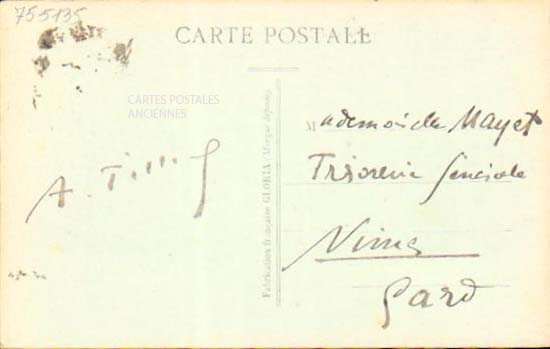 755135
CARTE POSTALE
CARTES POSTALES
ANCIENNES
Mademoiselle Mayet
Trésorerie Générale
Nimes
Gard
A.
Fabrication française GLORIA (Marque déposée)